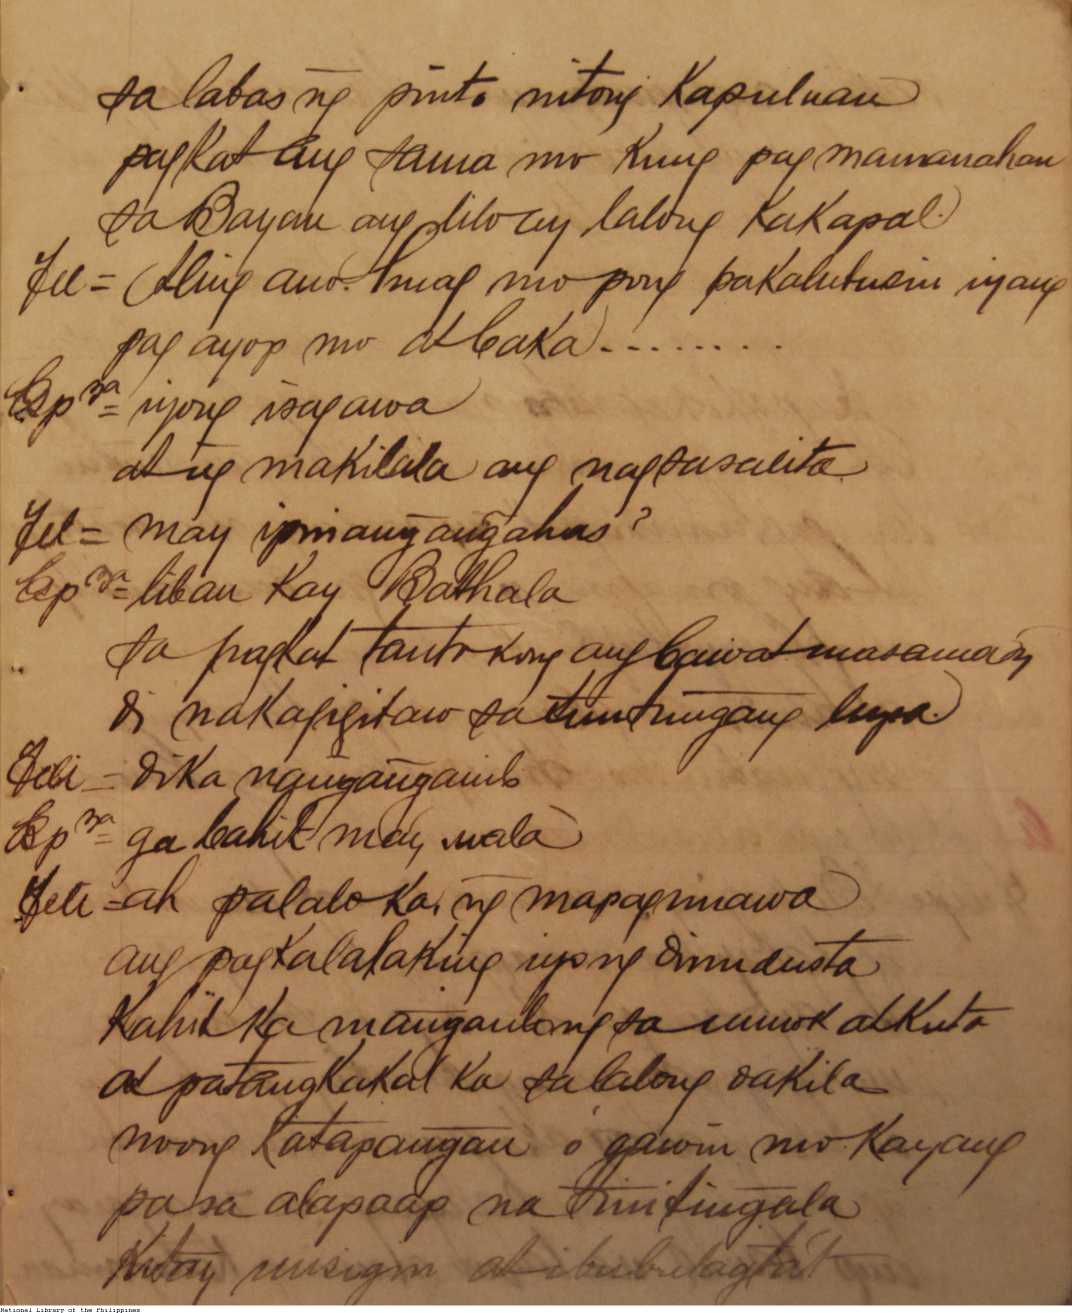 sa labas ng pinto nitong Kapuluan
pagkat ang sama mo kung pag mamanahan
sa Bayan ang lilo ay lalong kakapal.
Fel = Aling ano. huag mo pong pakalubusin iyang
pag ayop mo at baka........
Espza = iyong isagawa
at ng makilala ang nagsasalita
Fel = may ipinangangahas?
Espza = liban kay Bathala
sa pagkat tanto kong ang bawat masama ay
di nakagigitaw sa tinutungang lupa.
Feli = dika nanganganib
Espza = ga bahit may wala
Feli = ah palalo ka, ng mapagninawa
ang pagkalalaking iyong dinudusta
Kahit ka manganlong sa kuta
at patangkakal ka sa lalong dakila
noong katapangan ó gawin mo kayang
pasa alapaap na tinitingala
Kita'y at ibubulagta't
National Library of the Philippines